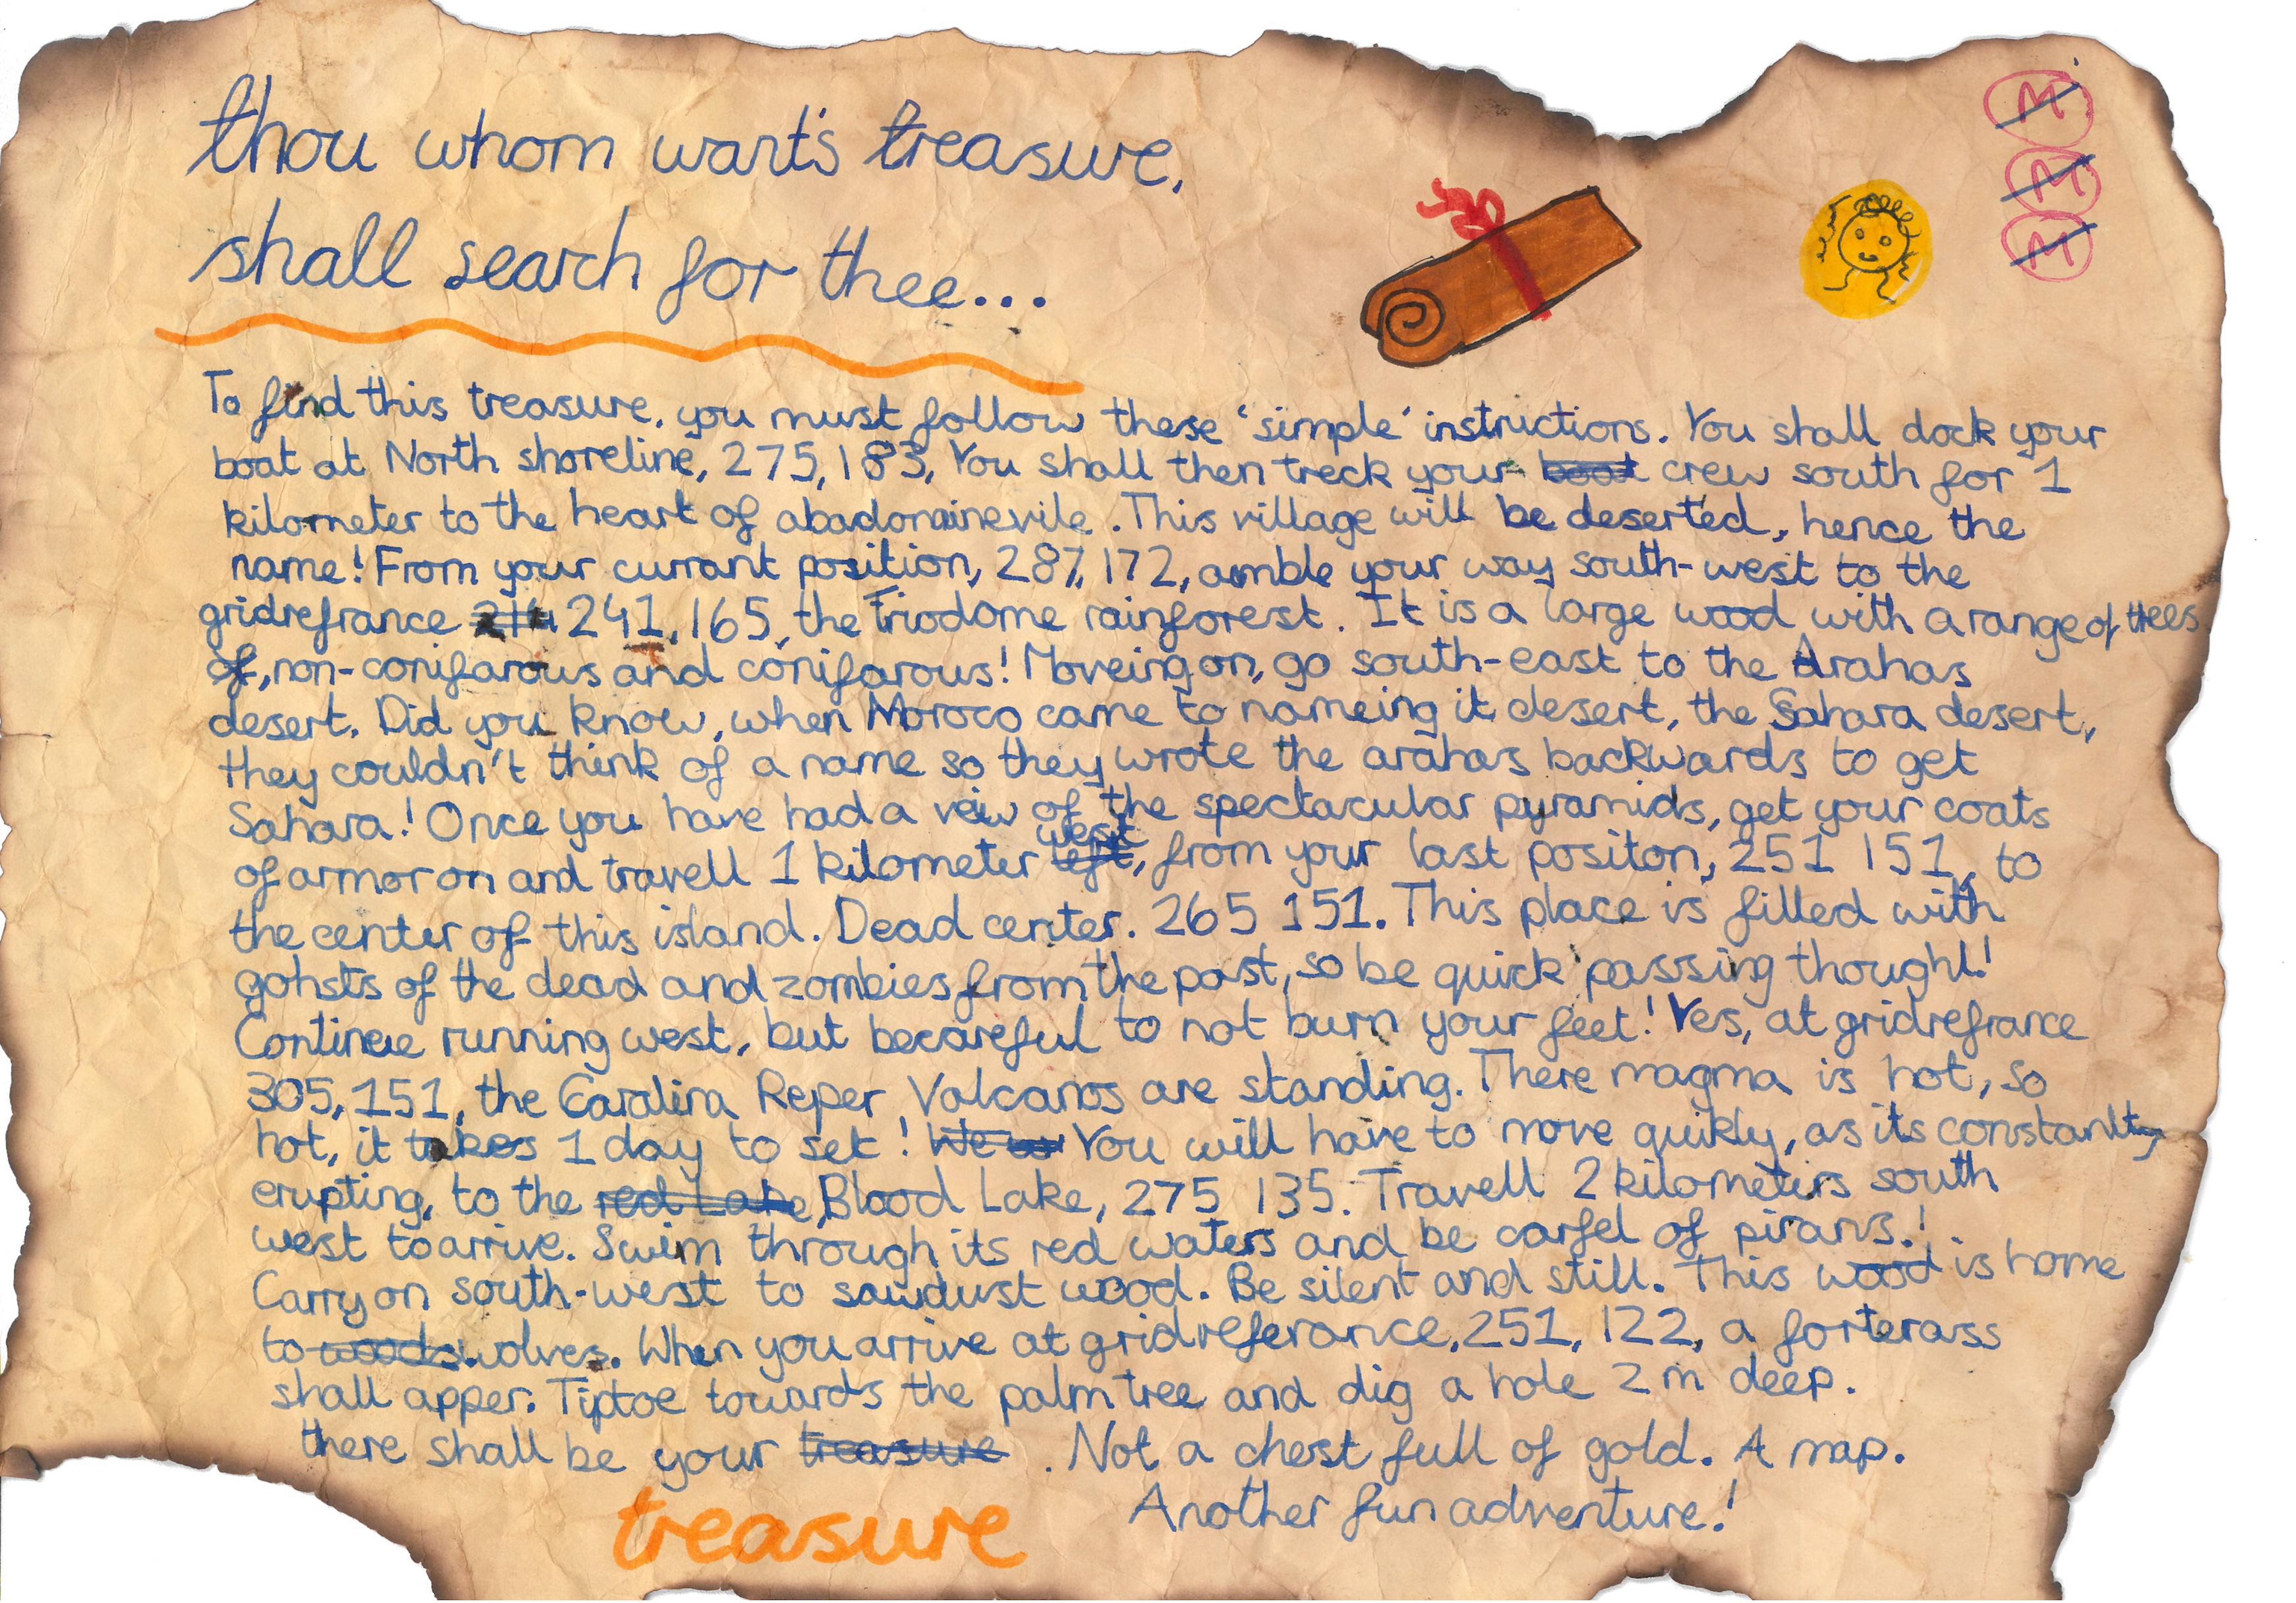 thou whom want's treasure,
shall search for thee...
M
M
M
To find this treasure, you must follow these 'simple' instrictions. You shall dock your
boat at North shoreline, 275,183, You shall then treck your boat crew south for 1
kilometer to the heart of abadonainevile. This village will be deserted, hence the
name! From your currant position, 287,172, amble your way south-west to the
gridrefrance 214 241,165, the triodome rainforest. It is a large wood with a range of trees
of, non-conifarous and conifarous! Moveing on, go south-east to the Arahas
desert. Did you know, when Moroco came to nameing it desert, the Sahara desert,
they couldn't think of a name so they wrote the arahas backwards to get
Sahara! Once you have had a veiw of the spectacular pyramids, get your coats
of armor on and travell 1 kilometer left west, from your last positon, 251 151, to
the center of this island. Dead center. 265 151. This place is filled with
gohsts of the dead and zombies from the past, so be quick passing thought!
Continue running west, but becareful to not burn your feet! Yes, at gridrefrance
305,151, the Caralina Reper Volcanos are standing. There magma is hot, so
hot, it takes 1 day to set! We w You will have to move quikly, as its constantly
erupting, to the red Lake, Blood Lake, 275 135. Travell 2 kilometers south
west to arrive. Swim through its red waters and be carfel of pirans!
Carry on south-west to sawdust wood. Be silent and still. This wood is home
to woods wolves. When you arrive at gridreferance, 251, 122, a forterass
shall apper. Tiptoe towards the palm tree and dig a hole 2 m deep.
there shall be your treasure . Not a chest full of gold. A map.
treasure Another fun adventure!